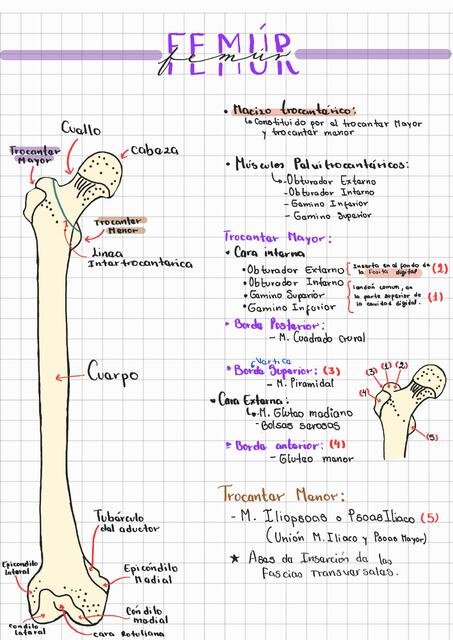 FEMÚR
femúr
Cuallo
Trocantar
Mayor
Cabaza
Trocantar
Menor
Línea
Intertrocantárica
Cuarpo
Tubárculo
dal aductor
Epicóndilo
lataral
Epicóndilo
Madial
Cóndilo
lataral
cara Rotuliana
Cóndilo
madial
• Macizo trocantárico:
↳ Constituido por al trocantar Mayor
y trocantar manor
• Músculos Palvitrocantáricos:
↳ - Obturador Externo
- Obturador Intarno
- Gamino Infarior
- Gamino Suparior
Trocantar Mayor:
• Cara interna
• Obturador Externo { Insarta an al fondo da la Fosita digital (2)
• Obturador Intarno
• Gamino Suparior
• Gamino Infarior
{ tandón común, an
la parta suparior da
la cavidad digital. (1)
• Borda Postarior:
- M. Cuadrado crural
Vártica
• Borda Suparior: (3)
- M. Piramidal
• Cara Externa:
↳ - M. Glutao madiano
- Bolsas sarosas
• Borda antarior: (4)
- Glutao manor
(3) (1) (2)
(4)
(5)
Trocantar Manor:
- M. Iliopsoas o PsoasIliaco (5)
(Unión M. Iliaco y Psoas Mayor)
★ Asas da Insarción da las
Fascias Transvarsalas.